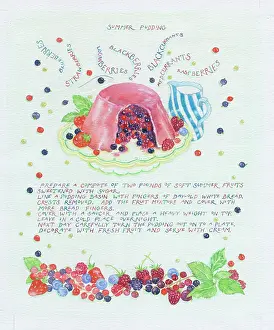 SUMMER PUDDING
CHERRIES
STRAWBERRIES
LOGANBERRIES
BLACKBERRIES
BLACKCURRANTS
REDCURRANTS
RASPBERRIES
PREPARE A COMPOTE OF TWO POUNDS OF SOFT SUMMER FRUITS
SWEETENED WITH SUGAR.
LINE A PUDDING BASIN WITH FINGERS OF DAY-OLD WHITE BREAD,
CRUSTS REMOVED. ADD THE FRUIT MIXTURE AND COVER WITH
MORE BREAD FINGERS.
COVER WITH A SAUCER, AND PLACE A HEAVY WEIGHT ON TOP.
LEAVE IN A COLD PLACE OVERNIGHT.
NEXT DAY CAREFULLY TURN THE PUDDING OUT ON TO A PLATE,
DECORATE WITH FRESH FRUIT AND SERVE WITH CREAM.